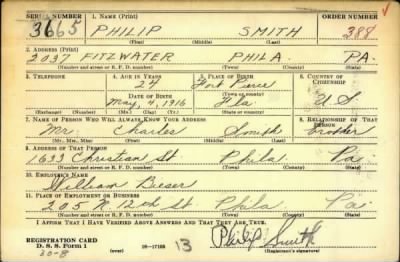 SERIAL NUMBER 1. NAME (Print) ORDER NUMBER
3665 PHILIP SMITH 388
(First) (Middle) (Last)
2. ADDRESS (Print)
2037 FITZWATER PHILA PA.
(Number and street or R. F. D. number) (Town) (County) (State)
3. TELEPHONE 4. AGE IN YEARS 5. PLACE OF BIRTH 6. COUNTRY OF CITIZENSHIP
24 Fort Pierce
DATE OF BIRTH (Town or county)
May, 4, 1916 Fla U S
(Exchange) (Number) (Mo.) (Day) (Yr.) (State or country)
7. NAME OF PERSON WHO WILL ALWAYS KNOW YOUR ADDRESS 8. RELATIONSHIP OF THAT PERSON
Mr. Charles Smith brother
(Mr., Mrs., Miss) (First) (Middle) (Last)
9. ADDRESS OF THAT PERSON
1633 Christian St Phila Pa.
(Number and street or R. F. D. number) (Town) (County) (State)
10. EMPLOYER'S NAME
William Beeser
11. PLACE OF EMPLOYMENT OR BUSINESS
205 N. 12th St Phila Pa
(Number and street or R. F. D. number) (Town) (County) (State)
I AFFIRM THAT I HAVE VERIFIED ABOVE ANSWERS AND THAT THEY ARE TRUE.
REGISTRATION CARD
D. S. S. Form 1 (over) 16-17105 13 Philip Smith
30-8 (Registrant's signature)